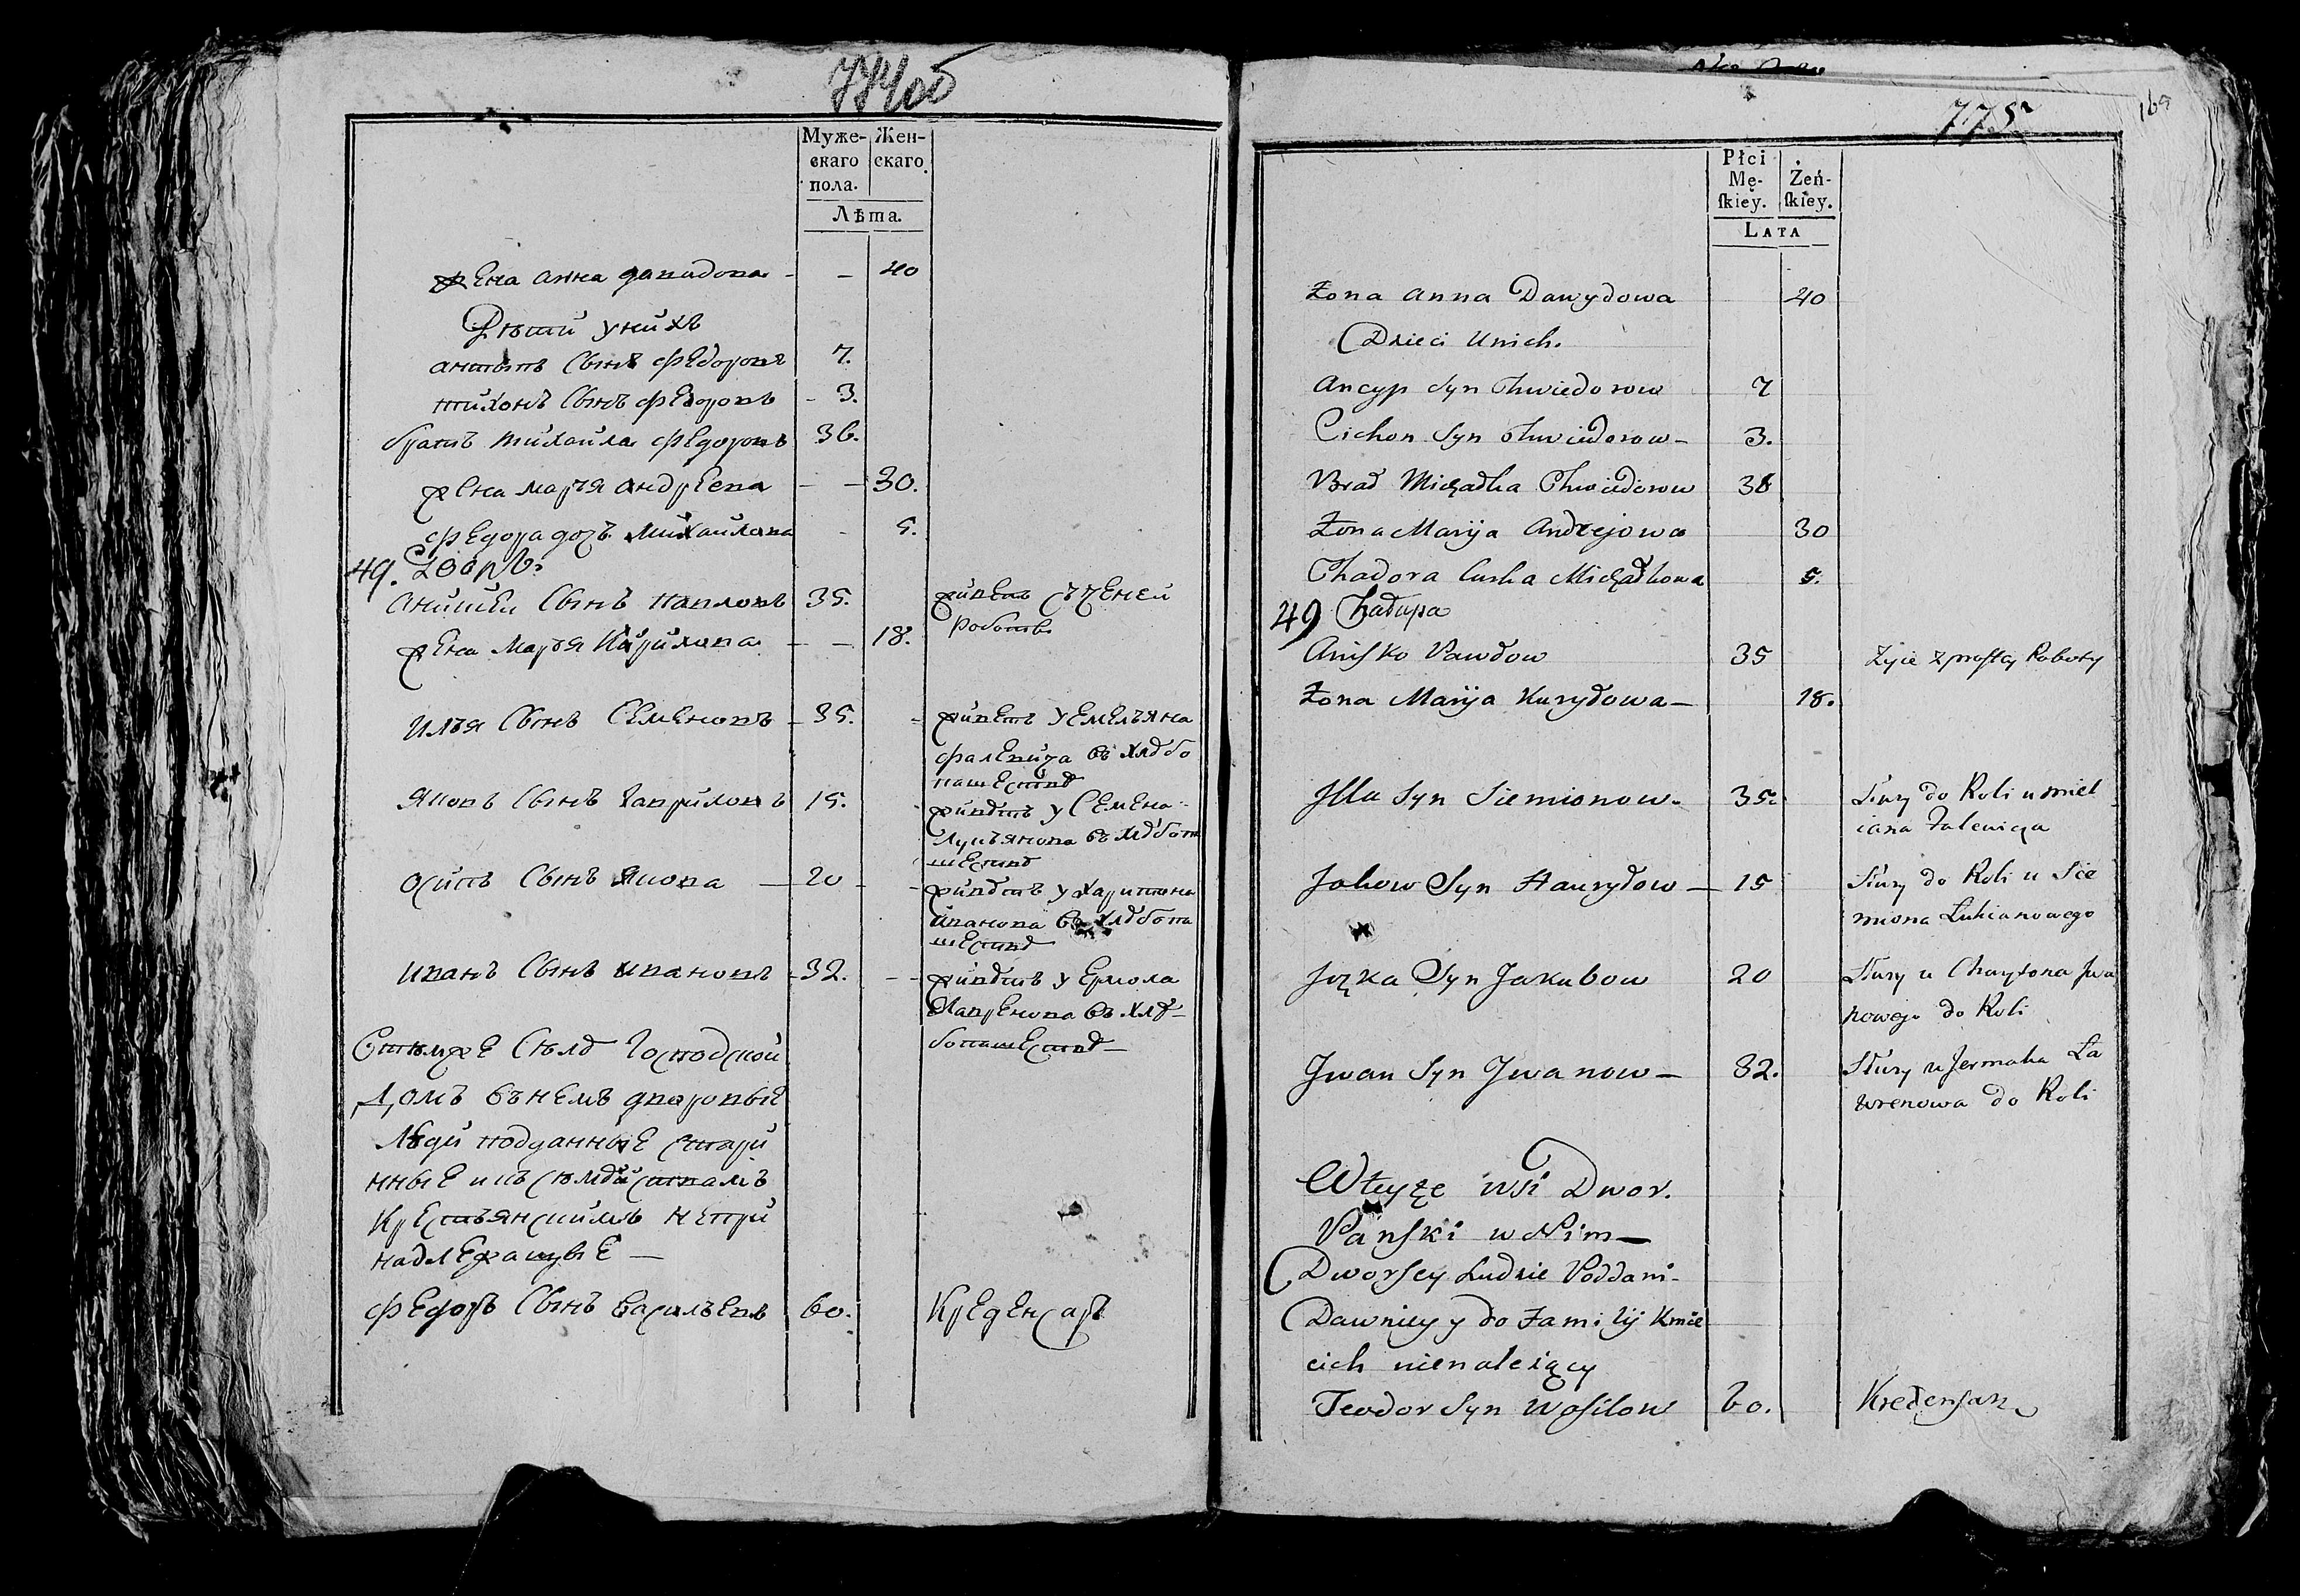 774об
Муже- Жен-
скаго скаго.
пола.
Лѣта.
жена анна давидова - - 40
Дѣти унихъ
антипъ сынъ федоровъ 7.
тихонъ сынъ федоровъ - 3.
братъ михайла федоровъ 36.
жена марья андреева - - 30.
федора дочь михайлова - 5.
49.
сынъ павловъ 35. живетъ
жена марья кирилова - - 18.
илья сынъ семеновъ - 35. - живетъ у емельяна
фалевича въ хлѣбо
пашествѣ
яковъ сынъ гавриловъ 15. - живѣтъ у семена
лукьянова въ хлѣбопа
шествѣ
осипъ сынъ якова - 20 - - живѣтъ у харитона
иванова въ хлѣбопа
шествѣ
иванъ сынъ ивановъ - 32. - - живѣтъ у ермола
лавренова въ хлѣ-
бопашествѣ -
Втомже селѣ господской
домъ внемъ дворовые
люди подданные стари
нные икъ
крестьянскимъ непри
надлежащые -
федоръ сынъ васильевъ 60. креденсаръ
775
169
Płci Żeń-
Mę- ſkiey.
ſkiey.
LATA
Żona anna Dawydowa 40
Dzieci Unich.
Ancyp Syn Chwiedorow 7
Cichon Syn Chwiedorow - 3.
Brad Michałka Chwiedorow 36
Żona Maryja Andrejowa 30
Chadora Curka Michałkowa 5.
49
Aniſko Pawłow 35 Żyie z proſtey Roboty
Żona Maryja Kuryłowa - 18.
Jlla Syn Siemionow - 35. Służy do Roli u Miel
iana Falewicza
Jakow Syn Hauryłow - 15 Służy do Roli u Sie
miona Łukianowego
Jozka Syn Jakubow 20 Służy u Charytona Jwa
nowego do Roli
Jwan Syn Jwanow - 32. Służy u Jermaka Ła
wrenowa do Roli
Wteyże wsi Dwor.
Panſki w Nim -
Dworscy Ludzie Poddani
Dawniey y do Familij Kmie
cich nienależący
Teodor Syn Waſilow 60. Kredenſarz